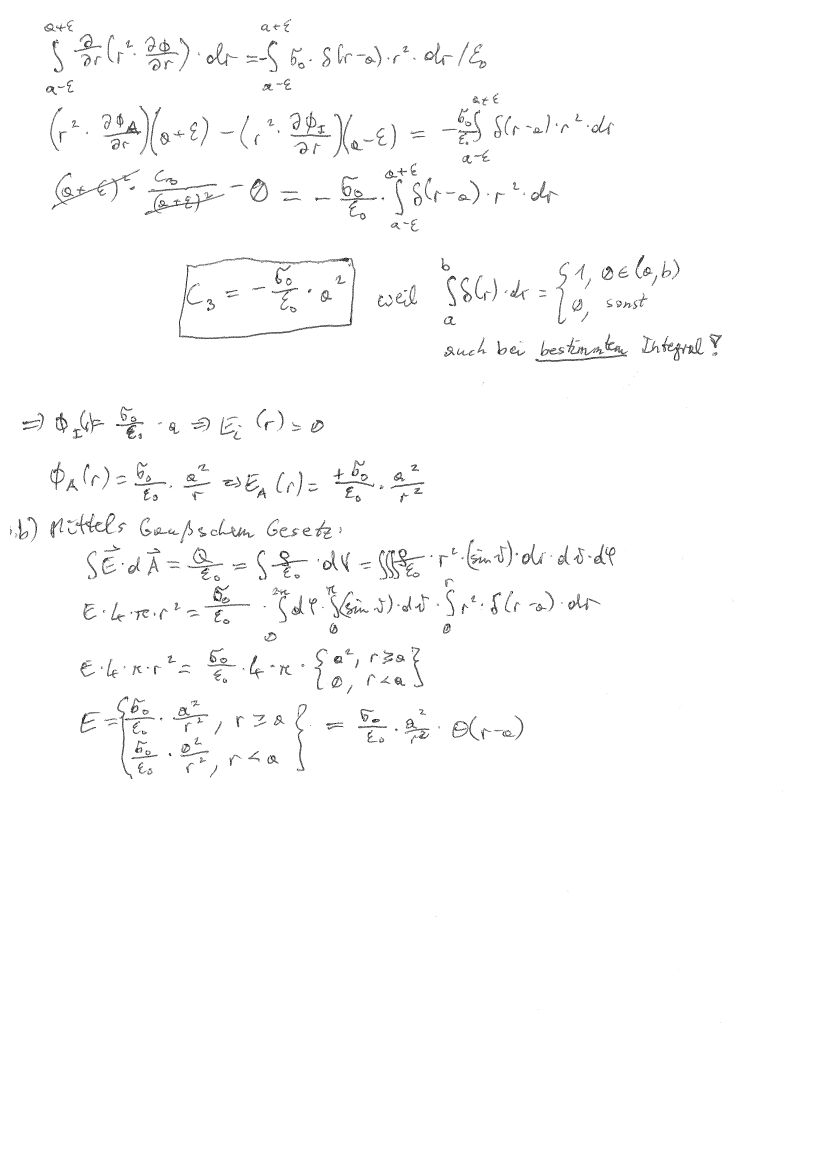 ∫_{a-ε}^{a+ε} ∂/∂r (r²·∂ϕ/∂r)·dr = -∫_{a-ε}^{a+ε} σ₀·δ(r-a)·r²·dr/ε₀
(r²·∂ϕ_A/∂r)(a+ε) - (r²·∂ϕ_I/∂r)(a-ε) = -σ₀/ε₀ ∫_{a-ε}^{a+ε} δ(r-a)·r²·dr
(a+ε)²·C₃/(a+ε)² - 0 = -σ₀/ε₀·∫_{a-ε}^{a+ε} δ(r-a)·r²·dr
C₃ = -σ₀/ε₀·a² weil ∫_a^b δ(r)·dr = {1, 0∈(a,b)
0, sonst
auch bei bestimmtem Integral!
⇒ ϕ_I(r)= σ₀/ε₀·a ⇒ E_i(r)=0
ϕ_A(r)=σ₀/ε₀·a²/r ⇒ E_A(r)=+σ₀/ε₀·a²/r²
b) Mittels Gaußschem Gesetz:
∫E⃗·dA⃗ = Q/ε₀ = ∫ρ/ε₀·dV = ∭ρ/ε₀·r²·(sin ϑ)·dr·dϑ·dφ
E·4·π·r² = σ₀/ε₀·∫_0^{2π} dφ·∫_0^π (sin ϑ)·dϑ·∫_0^r r²·δ(r-a)·dr
E·4·π·r² = σ₀/ε₀·4·π·{a², r≥a
0, r<a}
E = {σ₀/ε₀·a²/r², r≥a
σ₀/ε₀·0²/r², r<a} = σ₀/ε₀·a²/r²·Θ(r-a)